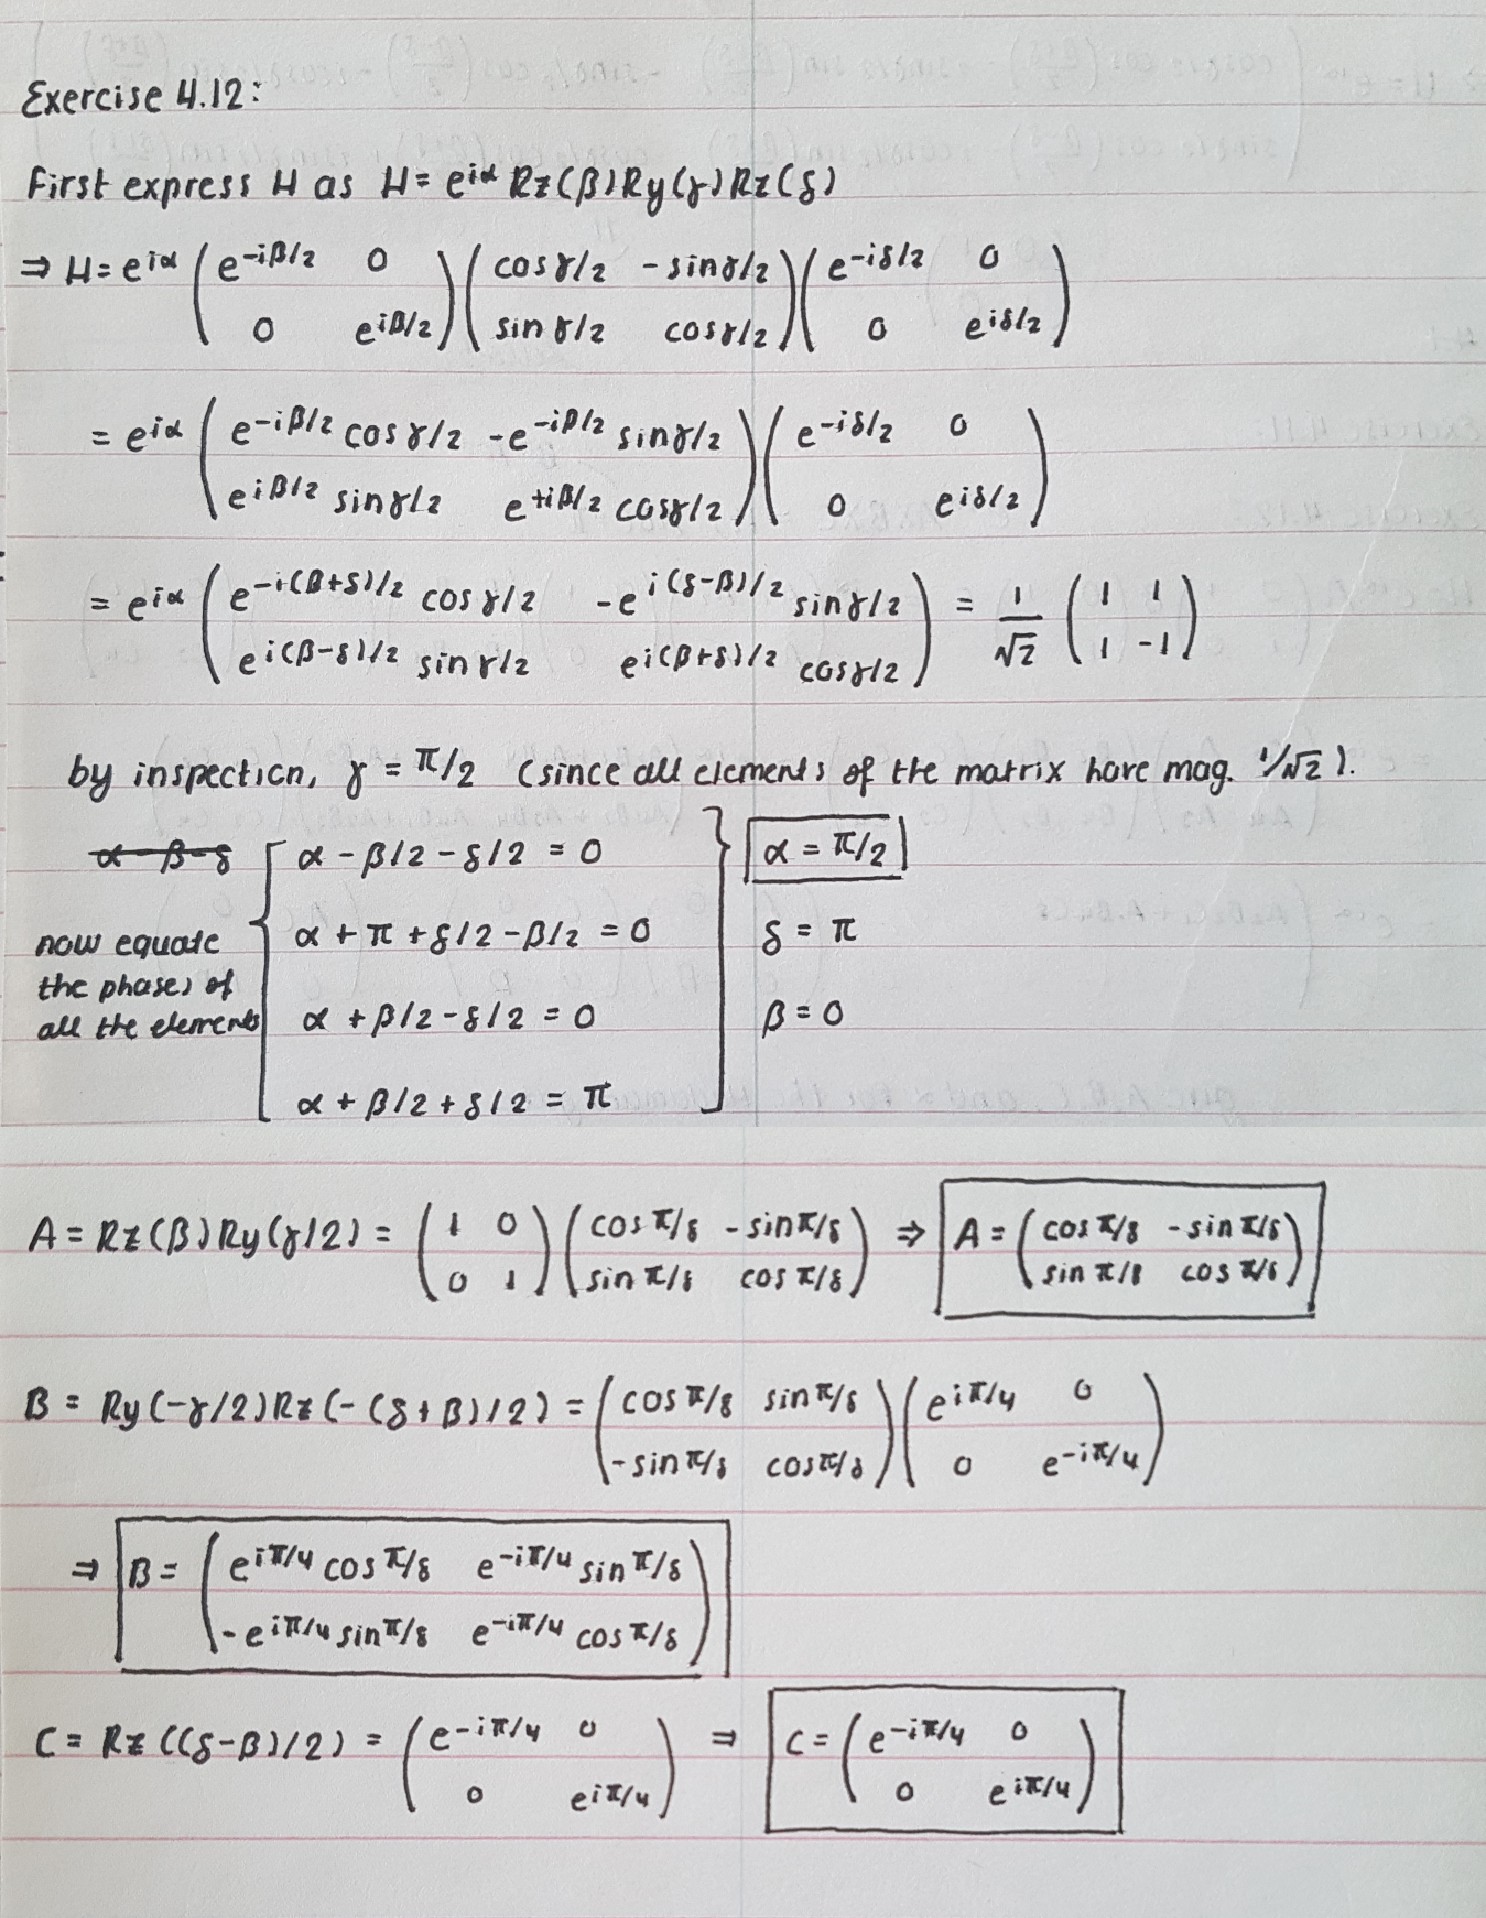 Exercise 4.12:
First express H as H = e^{iα} Rz(β) Ry(γ) Rz(δ)
⇒ H = e^{iα} ( e^{-iβ/2} 0 ; 0 e^{iβ/2} ) ( cos γ/2 - sin γ/2 ; sin γ/2 cos γ/2 ) ( e^{-iδ/2} 0 ; 0 e^{iδ/2} )
= e^{iα} ( e^{-iβ/2} cos γ/2 -e^{-iβ/2} sin γ/2 ; e^{iβ/2} sin γ/2 e^{+iβ/2} cos γ/2 ) ( e^{-iδ/2} 0 ; 0 e^{iδ/2} )
= e^{iα} ( e^{-i(β+δ)/2} cos γ/2 -e^{i(δ-β)/2} sin γ/2 ; e^{i(β-δ)/2} sin γ/2 e^{i(β+δ)/2} cos γ/2 ) = 1/√2 ( 1 1 ; 1 -1 )
by inspection, γ = π/2 (since all elements of the matrix have mag. 1/√2).
now equate
the phases of
all the elements
α - β/2 - δ/2 = 0
α + π + δ/2 - β/2 = 0
α + β/2 - δ/2 = 0
α + β/2 + δ/2 = π
α = π/2
δ = π
β = 0
A = Rz(β) Ry(γ/2) = ( 1 0 ; 0 1 ) ( cos π/8 - sin π/8 ; sin π/8 cos π/8 ) ⇒ A = ( cos π/8 - sin π/8 ; sin π/8 cos π/8 )
B = Ry(-γ/2) Rz(-(δ+β)/2) = ( cos π/8 sin π/8 ; - sin π/8 cos π/8 ) ( e^{iπ/4} 0 ; 0 e^{-iπ/4} )
⇒ B = ( e^{iπ/4} cos π/8 e^{-iπ/4} sin π/8 ; -e^{iπ/4} sin π/8 e^{-iπ/4} cos π/8 )
C = Rz((δ-β)/2) = ( e^{-iπ/4} 0 ; 0 e^{iπ/4} ) ⇒ C = ( e^{-iπ/4} 0 ; 0 e^{iπ/4} )